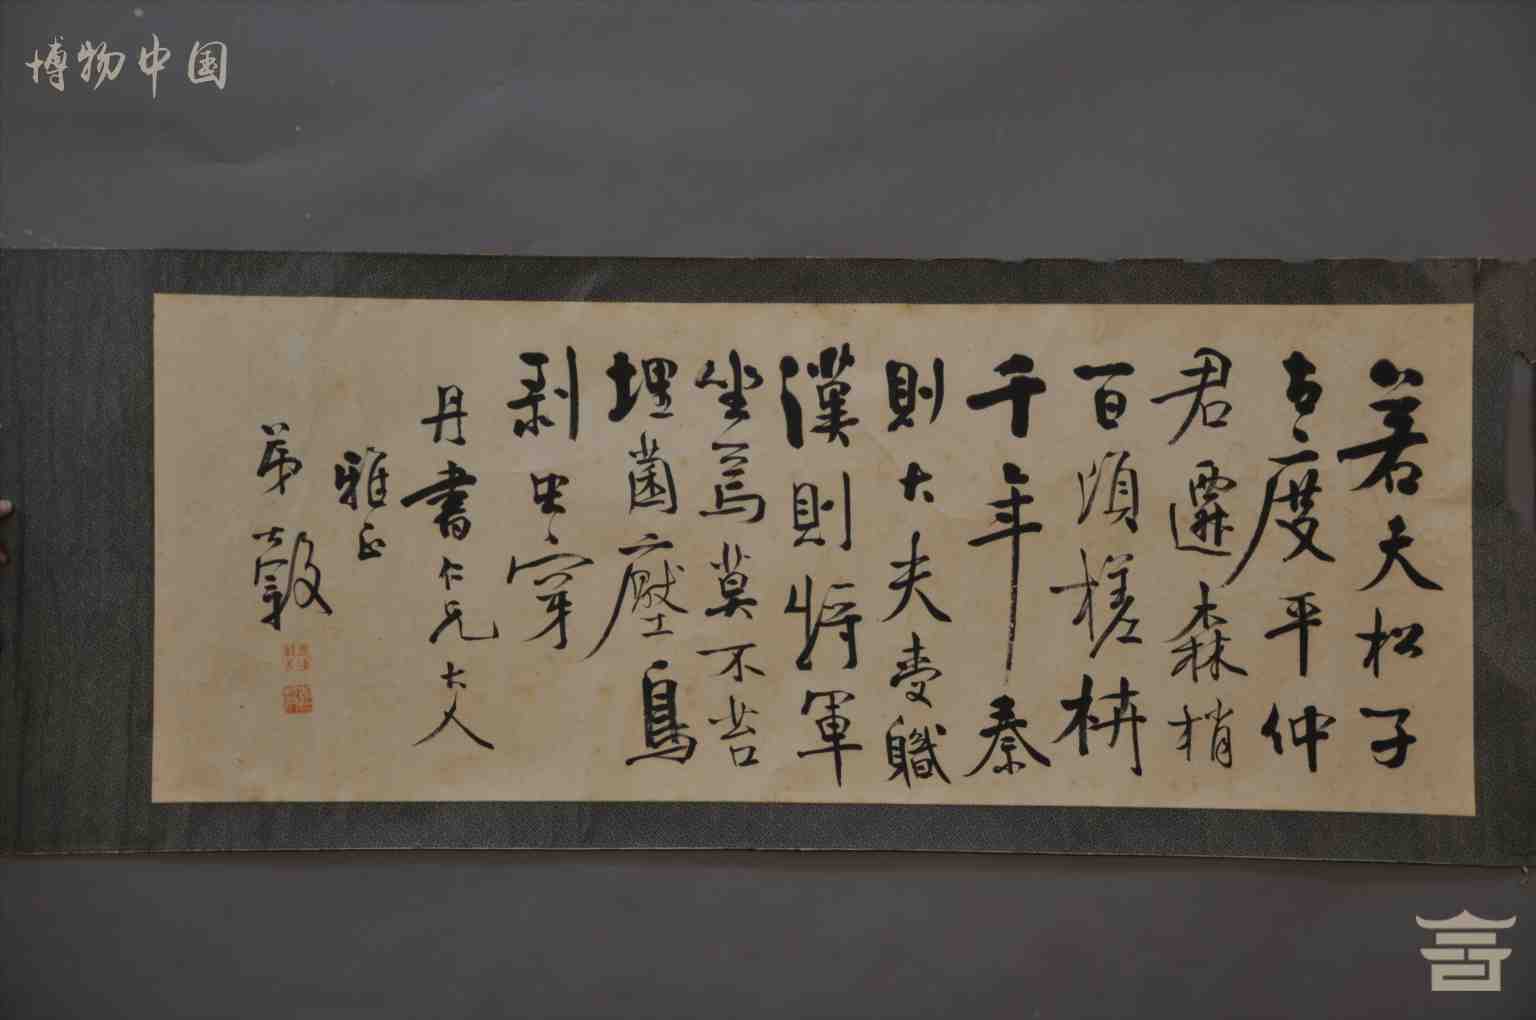 博物中国
若夫松子
古度平仲
君遷森梢
百頃槎枿
千年秦
則大夫受軄
漢則將軍
坐焉莫不苔
埋菌壓鳥
剥虫穿
丹書仁兄大人
雅正
弟